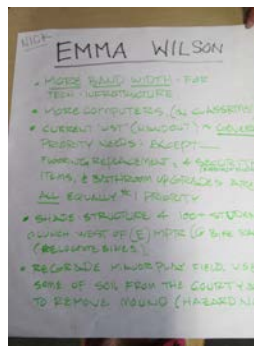 NICK
EMMA WILSON
• MORE BAND WIDTH - FOR
TECH - INFRASTRUCTURE
• MORE COMPUTERS (IN CLASSROOM
• CURRENT LIST (HANDOUT)
PRIORITY NEEDS: EXCEPT
FLOORING REPLACEMENT, & SECURITY
ITEMS, & BATHROOM UPGRADES ARE
ALL EQUALLY #1 PRIORITY
• SHADE STRUCTURE 4 100+ STUDEN
LUNCH WEST OF (E) MPR (@ BIKE
(RELOCATE BIKES).
• REGRADE MINOR PLAY FIELD USE
SOME OF SOIL FROM THE COURTY
TO REMOVE MOUND (HAZARD N